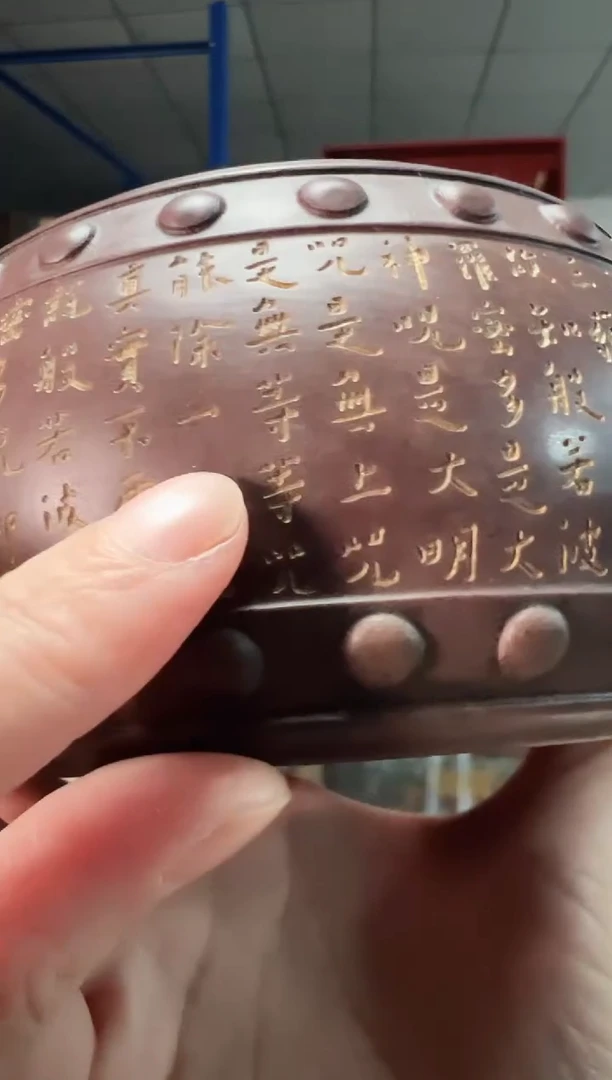 故知般若波
羅蜜多是大
神呪是大明
呪是無上咒
是無等等咒
能除一
真實不
說般若波